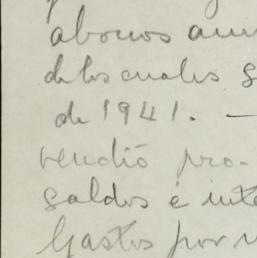 abonos
de los cuales
de 1941. —
vendió pro-
saldos é
Gastos por